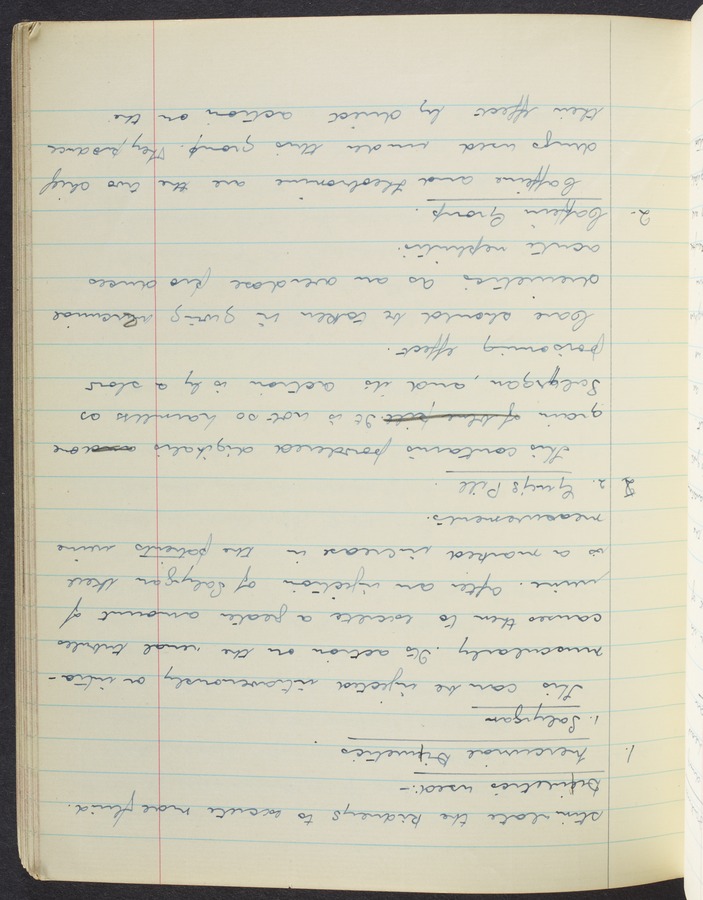 stimulate the kidneys to excrete more fluid.
Diruetics used:-
1. Mercurial Diruetics
1. Salyrgan
This can be injected intravenously or intra-
muscularly. Its action on the renal tubules
causes them to excrete a greater amount of
urine. After an injection of Salyrgan there
is a marked increase in the patients urine
measurements.
2. Guy's Pill.
This contains powdered digitalis
grain of blue pill. It is not so harmless as
Salyrgan, and its action is by a slow
poisoning effect.
Care should be taken in giving mercurial
diruetics as an overdose produces
acute nephritis.
2. Caffein Group.
Caffeine and theobromine are the two chief
drugs used under this group. They produce
their effect by direct action on the